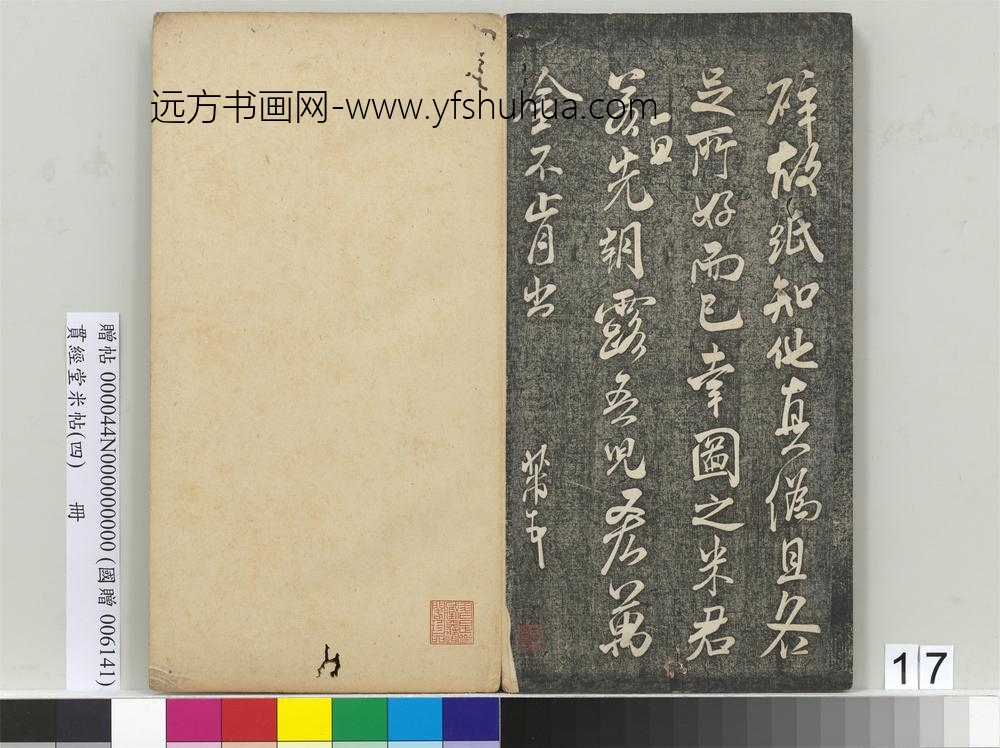 远方书画网-www.yfshuhua.com
碎故紙知他真偽且各
足所好而已幸圖之米君
若一旦先朝露吾兒吝萬
金不肯出 芾
贈帖 000044N000000000 (國贈 006141)
貫經堂米帖(四) 冊
17